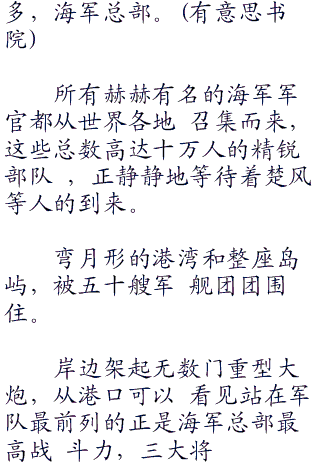 多，海军总部。(有意思书
院)
所有赫赫有名的海军军
官都从世界各地 召集而来，
这些总数高达十万人的精锐
部队 ，正静静地等待着楚风
等人的到来。
弯月形的港湾和整座岛
屿，被五十艘军 舰团团围
住。
岸边架起无数门重型大
炮，从港口可以 看见站在军
队最前列的正是海军总部最
高战 斗力，三大将